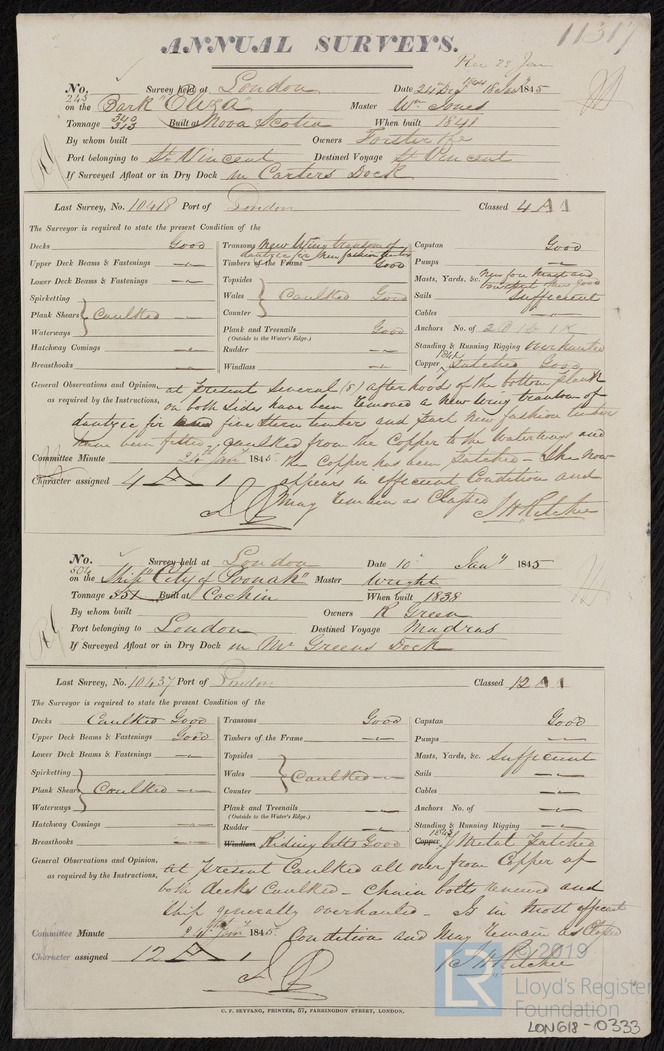 11317
ANNUAL SURVEYS.
Rec 23 Jan
No. 243 Survey held at London Date 24th Dec 1844 18 Jany 1845
on the Bark "Eliza" Master Wm Jones
Tonnage 340 313 Built at Nova Scotia When built 1841
By whom built Owners Forster &c
Port belonging to St. Vincent Destined Voyage St Vincent
If Surveyed Afloat or in Dry Dock in Carters Dock
Last Survey, No. 10418 Port of London Classed 4 A 1
The Surveyor is required to state the present Condition of the
Decks Good
Upper Deck Beams & Fastenings
Lower Deck Beams & Fastenings
Spirketting
Plank Shears } Caulked
Waterways
Hatchway Comings
Breasthooks
Transoms New Wing transom of dantzic fir New fashion timbers
Timbers of the Frame Good
Topsides
Wales } Caulked Good
Counter
Plank and Treenails Good
(Outside to the Water's Edge.)
Rudder
Windlass
Capstan Good
Pumps
Masts, Yards, &c. New fore Mast and
Sails Sufficient
Cables
Anchors No. of 2 B 1 S 1 K
Standing & Running Rigging overhauled
Copper 1841 Patched Good
General Observations and Opinion, at Present several (8) after hoods of the bottom plank
as required by the Instructions, on both sides have been removed a new wing transom of
dantzic fir five stern timbers and Starb New fashion timber
have been fitted, caulked from the Copper to the Waterways and
Committee Minute 24th Jany 1845. the Copper has been patched - She now
Character assigned 4 A 1 appears in efficient Condition and
may remain as Classed J H Ritchie
No. 504 Survey held at London Date 10 Jany 1845
on the Ship "City of Poonah" Master Wright
Tonnage 551 Built at Cochin When built 1838
By whom built Owners R Green
Port belonging to London Destined Voyage Madras
If Surveyed Afloat or in Dry Dock in Mr Greens Dock
Last Survey, No. 10437 Port of London Classed 12 A 1
The Surveyor is required to state the present Condition of the
Decks Caulked Good
Upper Deck Beams & Fastenings Good
Lower Deck Beams & Fastenings
Spirketting
Plank Shears } Caulked
Waterways
Hatchway Comings
Breasthooks
Transoms Good
Timbers of the Frame
Topsides
Wales } Caulked
Counter
Plank and Treenails
(Outside to the Water's Edge.)
Rudder
Windlass Riding bitts Good
Capstan Good
Pumps
Masts, Yards, &c. Sufficient
Sails
Cables
Anchors No. of
Standing & Running Rigging
Copper 1843 Y Metal Patched
General Observations and Opinion, at Present Caulked all over from Copper up
as required by the Instructions, both decks Caulked - Chain bolts renewed and
Ship generally overhauled - Is in most efficient
Committee Minute 24th Jany 1845. Condition and may remain as Classed
Character assigned 12 A 1 J H Ritchie
C. F. SEYFANG, PRINTER, 57, FARRINGDON STREET, LONDON.
LR
© 2019
Lloyd's Register
Foundation
LON618-0333